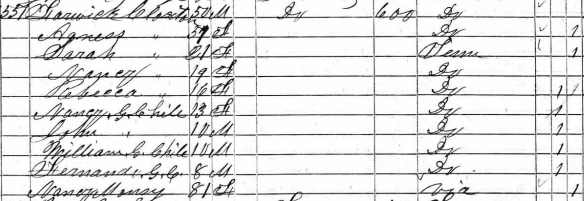 557 Warwick 50 M Do 600 Do
Agness " 51 F Do 1
Sarah " 21 F Tenn 1
Nancy " 19 F Do
Rebecca " 16 F Do 1
Nancy G. Chile 13 F Do 1
John " 10 M Do 1
William C. Chile 10 M Do 1
Fernando G. C. 8 M Do 1
Nancy 81 F Via 1